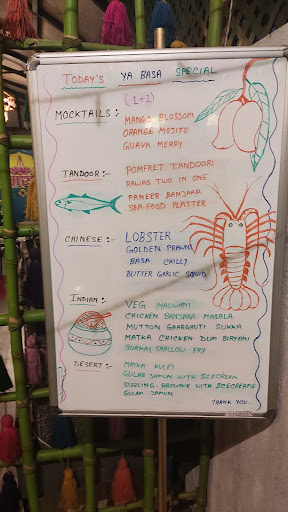 TODAY'S YA BASA SPECIAL
(1+1)
MOCKTAILS :-
MANGO BLOSSOM
ORANGE MOJITO
GUAVA MERRY
TANDOOR :-
POMFRET TANDOORI
RAWAS TWO IN ONE
PANEER BANJARA
SEA-FOOD PLATTER
CHINESE :-
LOBSTER
GOLDEN PRAWN
BASA CHILLY
BUTTER GARLIC SQUID
INDIAN :-
VEG MALWANI
CHICKEN BANJARA MASALA
MUTTON GHARGHUTI SUKKA
MATKA CHICKEN DUM BIRYANI
SURMAI SHALLOW FRY
DESERT :-
MATKA KULFI
GULAB JAMUN WITH ICECREAM
SIZZLING BROWNIE WITH ICECREAME
GULAB JAMUN
THANK YOU..